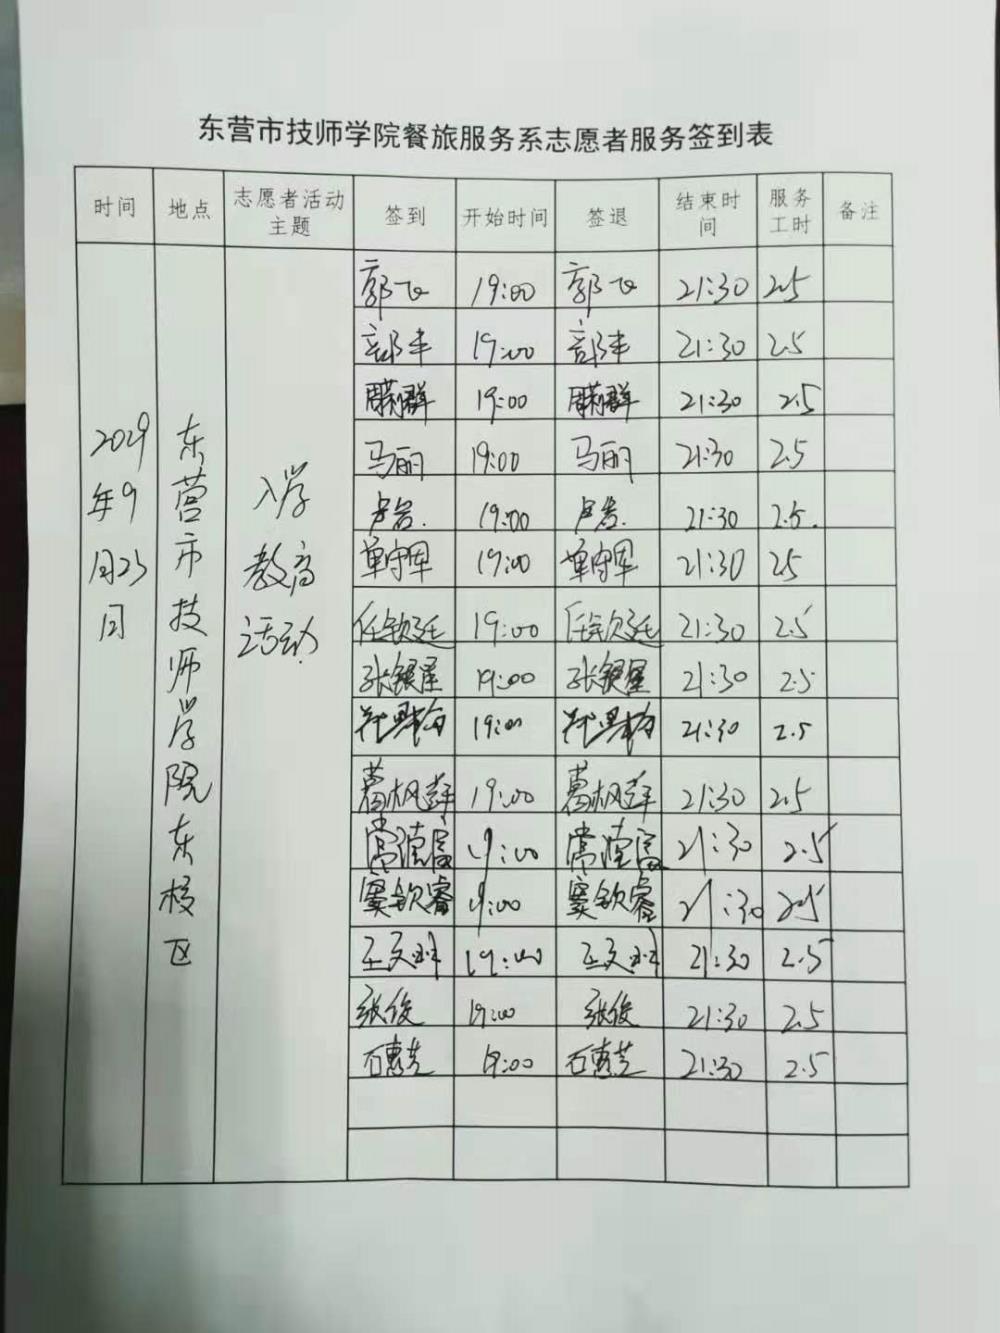 东营市技师学院餐旅服务系志愿者服务签到表
时间 地点 志愿者活动主题 签到 开始时间 签退 结束时间 服务工时 备注
2019年9月23日 东营市技师学院东校区 入学教育活动
郭飞 19:00 郭飞 21:30 2.5
郭丰 19:00 郭丰 21:30 2.5
周莉群 19:00 周莉群 21:30 2.5
马丽 19:00 马丽 21:30 2.5
卢岩. 19:00 卢岩. 21:30 2.5.
单守军 19:00 单守军 21:30 2.5
任钦廷 19:00 任钦廷 21:30 2.5
张银星 19:00 张银星 21:30 2.5
19:00 21:30 2.5
葛枫萍 19:00 葛枫萍 21:30 2.5
19:00 21:30 2.5
窦钦睿 19:00 窦钦睿 21:30 2.5
19:00 21:30 2.5
张俊 19:00 张俊 21:30 2.5
石惠芝 19:00 石惠芝 21:30 2.5